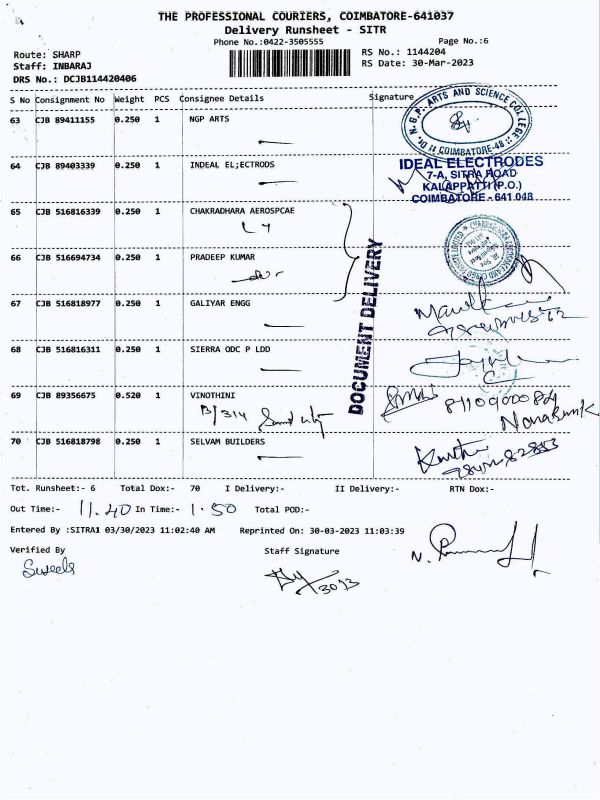 THE PROFESSIONAL COURIERS, COIMBATORE-641037
Delivery Runsheet - SITR
Phone No.:0422-3505555 Page No.:6
Route: SHARP RS No.: 1144204
Staff: INBARAJ RS Date: 30-Mar-2023
DRS No.: DCJB114420406
S No Consignment No Weight PCS Consignee Details Signature
63 CJB 89411155 0.250 1 NGP ARTS
Dr. N.G.P. ARTS AND SCIENCE COLLEGE COIMBATORE-48
64 CJB 89403339 0.250 1 INDEAL EL;ECTRODS
IDEAL ELECTRODES
7-A, SITRA ROAD
KALAPPATTI (P.O.)
COIMBATORE - 641 048
65 CJB 516816339 0.250 1 CHAKRADHARA AEROSPCAE
66 CJB 516694734 0.250 1 PRADEEP KUMAR
DOCUMENT DELIVERY
67 CJB 516818977 0.250 1 GALIYAR ENGG
68 CJB 516816311 0.250 1 SIERRA ODC P LDD
69 CJB 89356675 0.520 1 VINOTHINI
B/314
70 CJB 516818798 0.250 1 SELVAM BUILDERS
Tot. Runsheet:- 6 Total Dox:- 70 I Delivery:- II Delivery:- RTN Dox:-
Out Time:- 11.40 In Time:- 1.50 Total POD:-
Entered By :SITRA1 03/30/2023 11:02:40 AM Reprinted On: 30-03-2023 11:03:39
Verified By Staff Signature